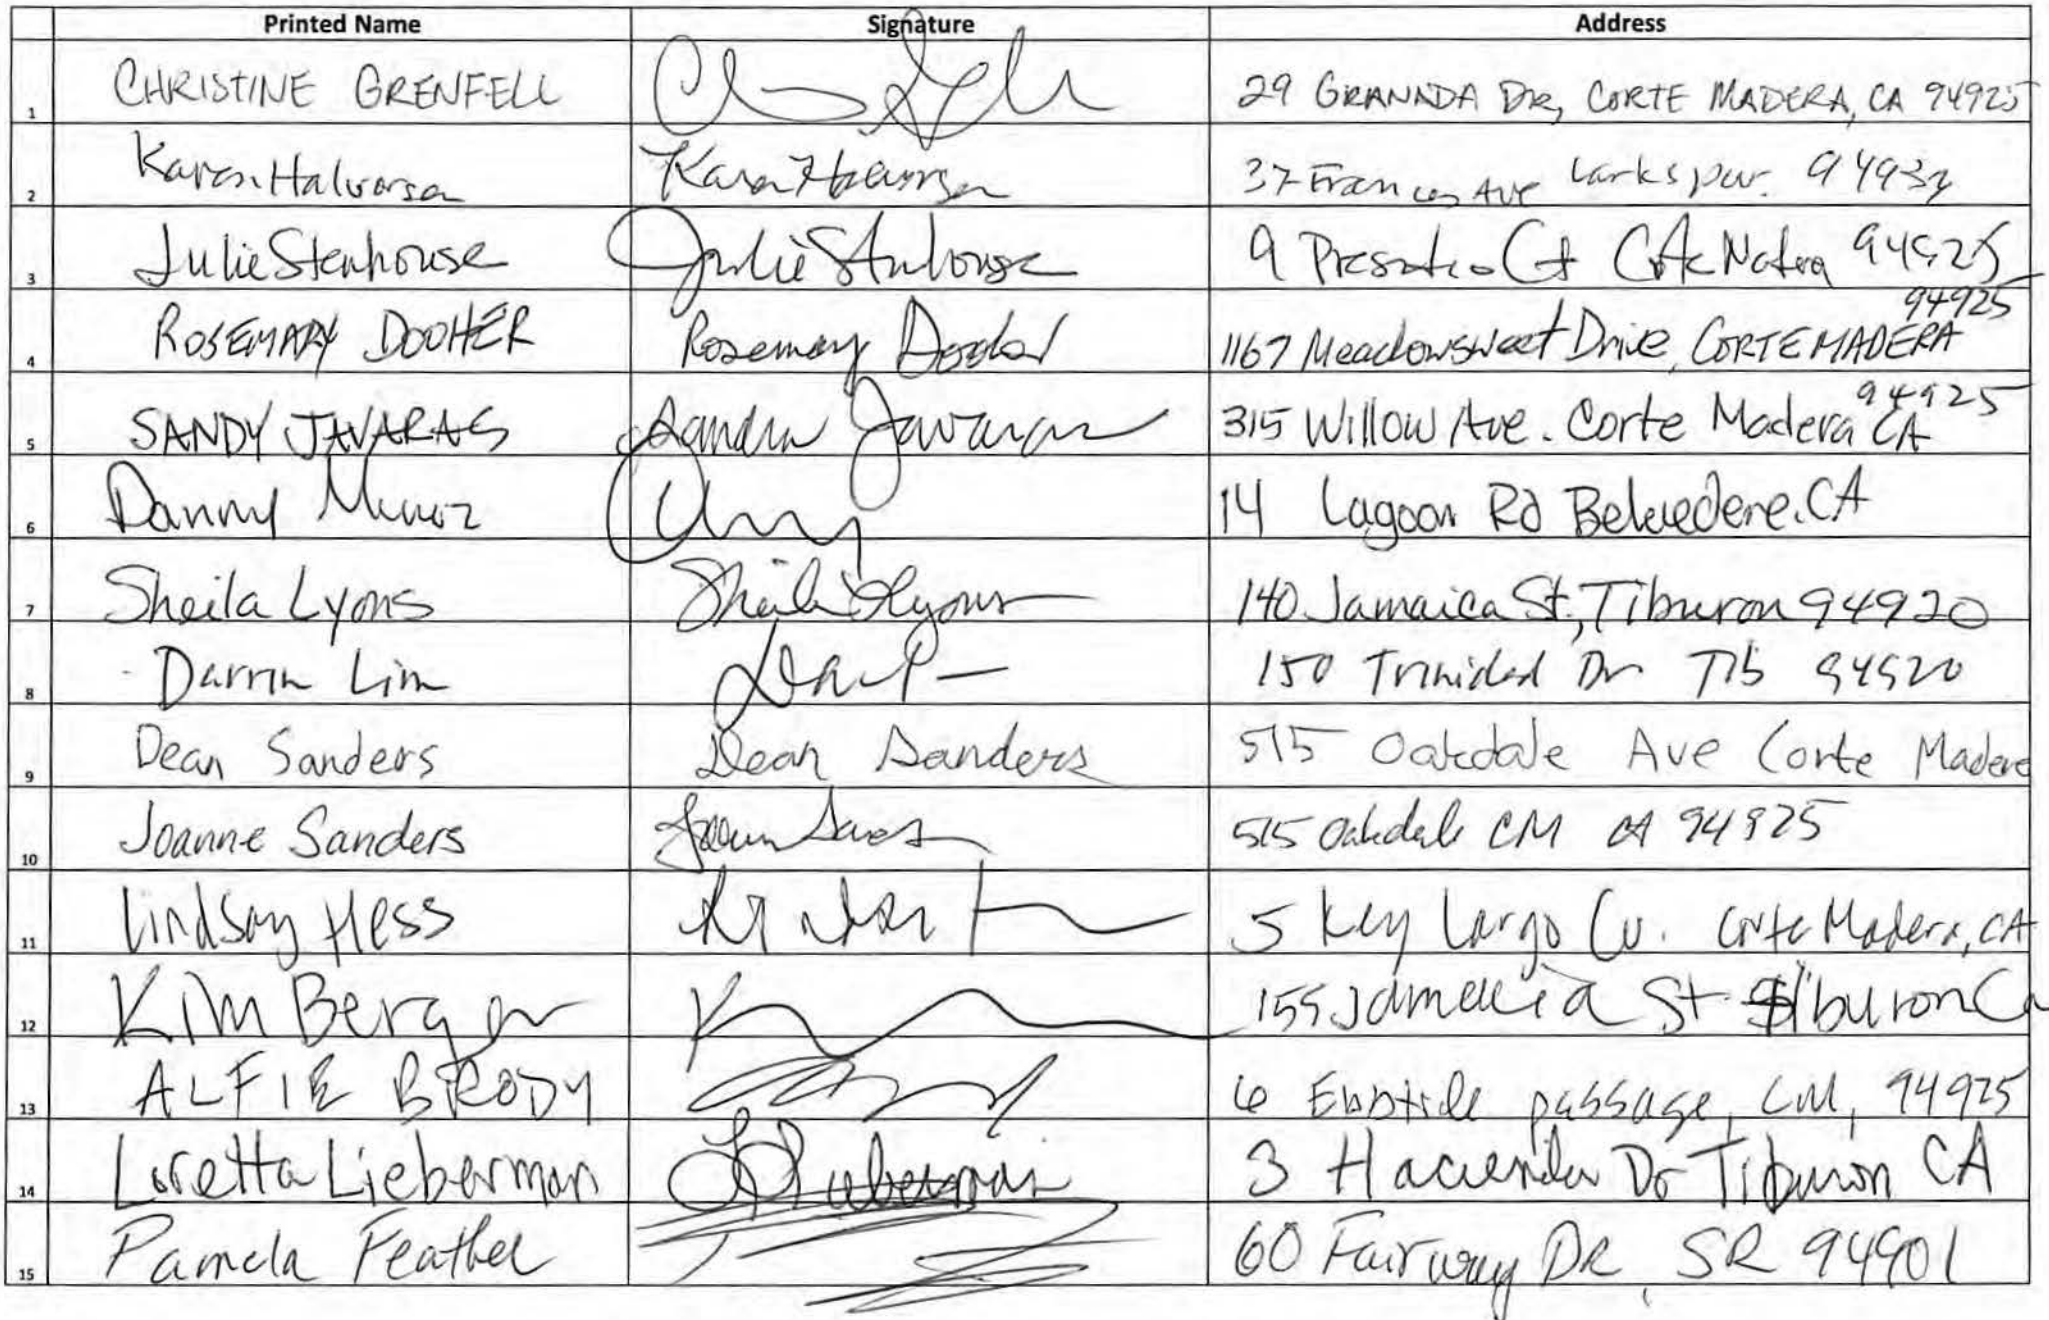 Printed Name Signature Address
1 CHRISTINE GRENFELL 29 GRANADA DR, CORTE MADERA, CA 94925
2 Karen Halvorsen Karen Halvorsen 37 Frances Ave Larkspur. 94939
3 Julie Stenhouse Julie Stenhouse 9 Presidio Ct Corte Madera 94925
94925
4 ROSEMARY DOOHER Rosemary Dooher 1167 Meadowsweet Drive, CORTE MADERA
94925
5 SANDY JAVARAS Sandra Javaras 315 Willow Ave. Corte Madera CA
6 Danny Munoz 14 Lagoon Rd Belvedere. CA
7 Sheila Lyons Sheila Lyons 140 Jamaica St, Tiburon 94920
8 Darrin Lim 150 Trinidad Dr Tib 94920
9 Dean Sanders Dean Sanders 515 Oakdale Ave Corte Madera
10 Joanne Sanders 515 Oakdale CM CA 94925
11 Lindsay Hess 5 Key Largo Cv. Corte Madera, CA
12 Kim Berger 155 St Tiburon Ca
13 ALFIE BRODY 6 Ebbtide passage, CM, 94925
14 Loretta Lieberman Lieberman 3 Hacienda Dr Tiburon CA
15 Pamela Feathel 60 Fairway DR, SR 94901